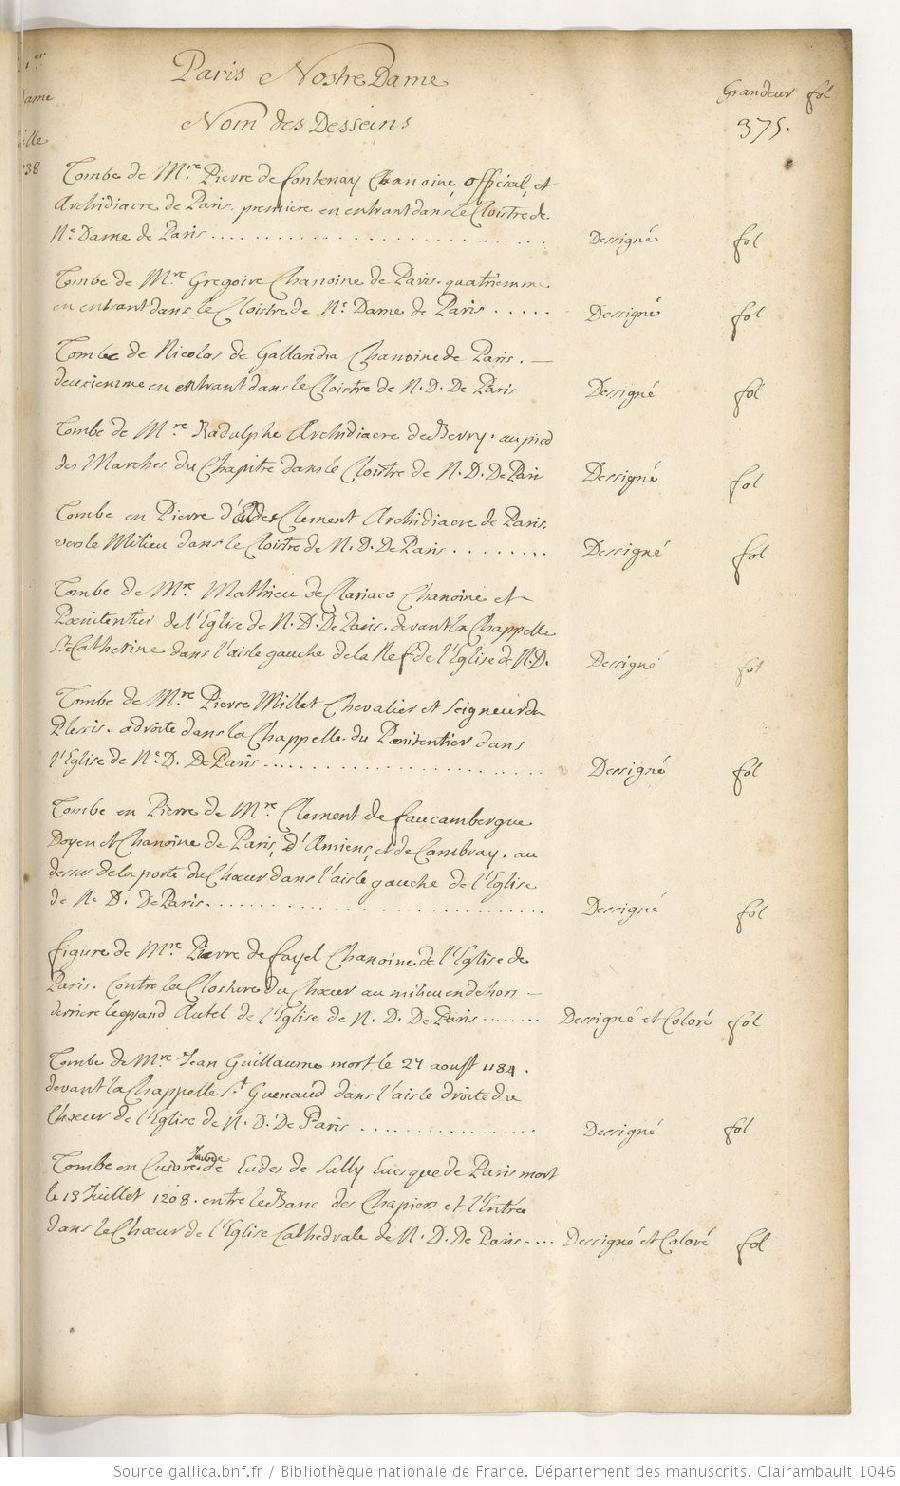 Paris Nostre Dame
Grandeur fol
Nom des Desseins
375.
ame
38
Tombe de Mre Pierre de fontenay Chanoine, official, et
Archidiacre de Paris. premiere en entrant dans le Cloitre de
Ne Dame de Paris .......... Dessigné fol
Tombe de Mre Gregoire Chanoine de Paris. quatriemme
en entrant dans le Cloitre de Ne Dame de Paris ..... Dessigné fol
Tombe de Nicolas de Gallandia Chanoine de Paris. —
deuxiemme en entrant dans le Cloitre de N. D. De Paris Dessigné fol
Tombe de Mre Radulphe Archidiacre de Berry. au pied
des Marches du Chapitre dans le Cloitre de N. D. De Paris Dessigné fol
Tombe en Pierre d'Eudes Clement Archidiacre de Paris.
vers le Milieu dans le Cloitre de N. D. De Paris ........ Dessigné fol
Tombe de Mre Mathieu de Clariaco Chanoine et
Poenitentier de l'Eglise de N. D. De Paris. devant la Chappelle
Ste Catherine dans l'aisle gauche de la Nef de l'Eglise de N. D. Dessigné fol
Tombe de Mre Pierre Millet Chevalier et Seigneur du
Plesis. a droite dans la Chappelle du Penitentier dans
l'Eglise de Ne D. De Paris .......... Dessigné fol
Tombe en Pierre de Mre Clement de faucambergue
Doyen et Chanoine de Paris, d'Amiens, et de Cambray. au
dessus de la porte du Choeur dans l'aisle gauche de l'Eglise
de Ne D. De Paris .......... Dessigné fol
figure de Mre Pierre de fayel Chanoine de l'Eglise de
Paris. Contre la Closture du Choeur au milieu en dehors —
derriere le grand Autel de l'Eglise de N. D. De Paris ....... Dessigné et Coloré fol
Tombe de Mre Jean Guillaume mort le 27 aoust 1184.
devant la Chappelle St Guenaud dans l'aisle droite du
Choeur de l'Eglise de N. D. De Paris .......... Dessigné fol
Tombe en Cuivre Jaune de Eudes de Sully Euesque de Paris mort
le 13 Juillet 1208. entre le Banc des Chapiers et l'Entrée
dans le Choeur de l'Eglise Cathedrale de N. D. De Paris .... Dessigné et Coloré fol
Source gallica.bnf.fr / Bibliothèque nationale de France. Département des manuscrits. Clairambault 1046